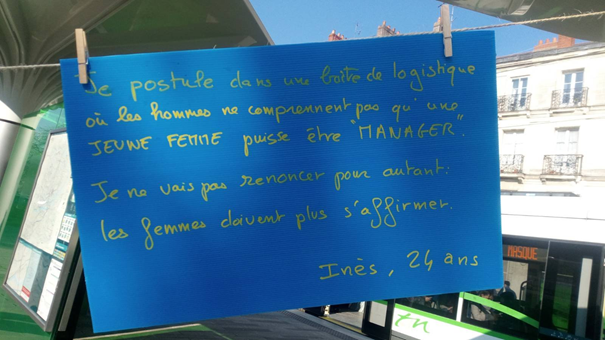 Je postule dans une boîte de logistique
où les hommes ne comprennent pas qu'une
JEUNE FEMME puisse être "MANAGER".
Je ne vais pas renoncer pour autant:
les femmes doivent plus s'affirmer.
Inès, 24 ans
MASQUE
tn